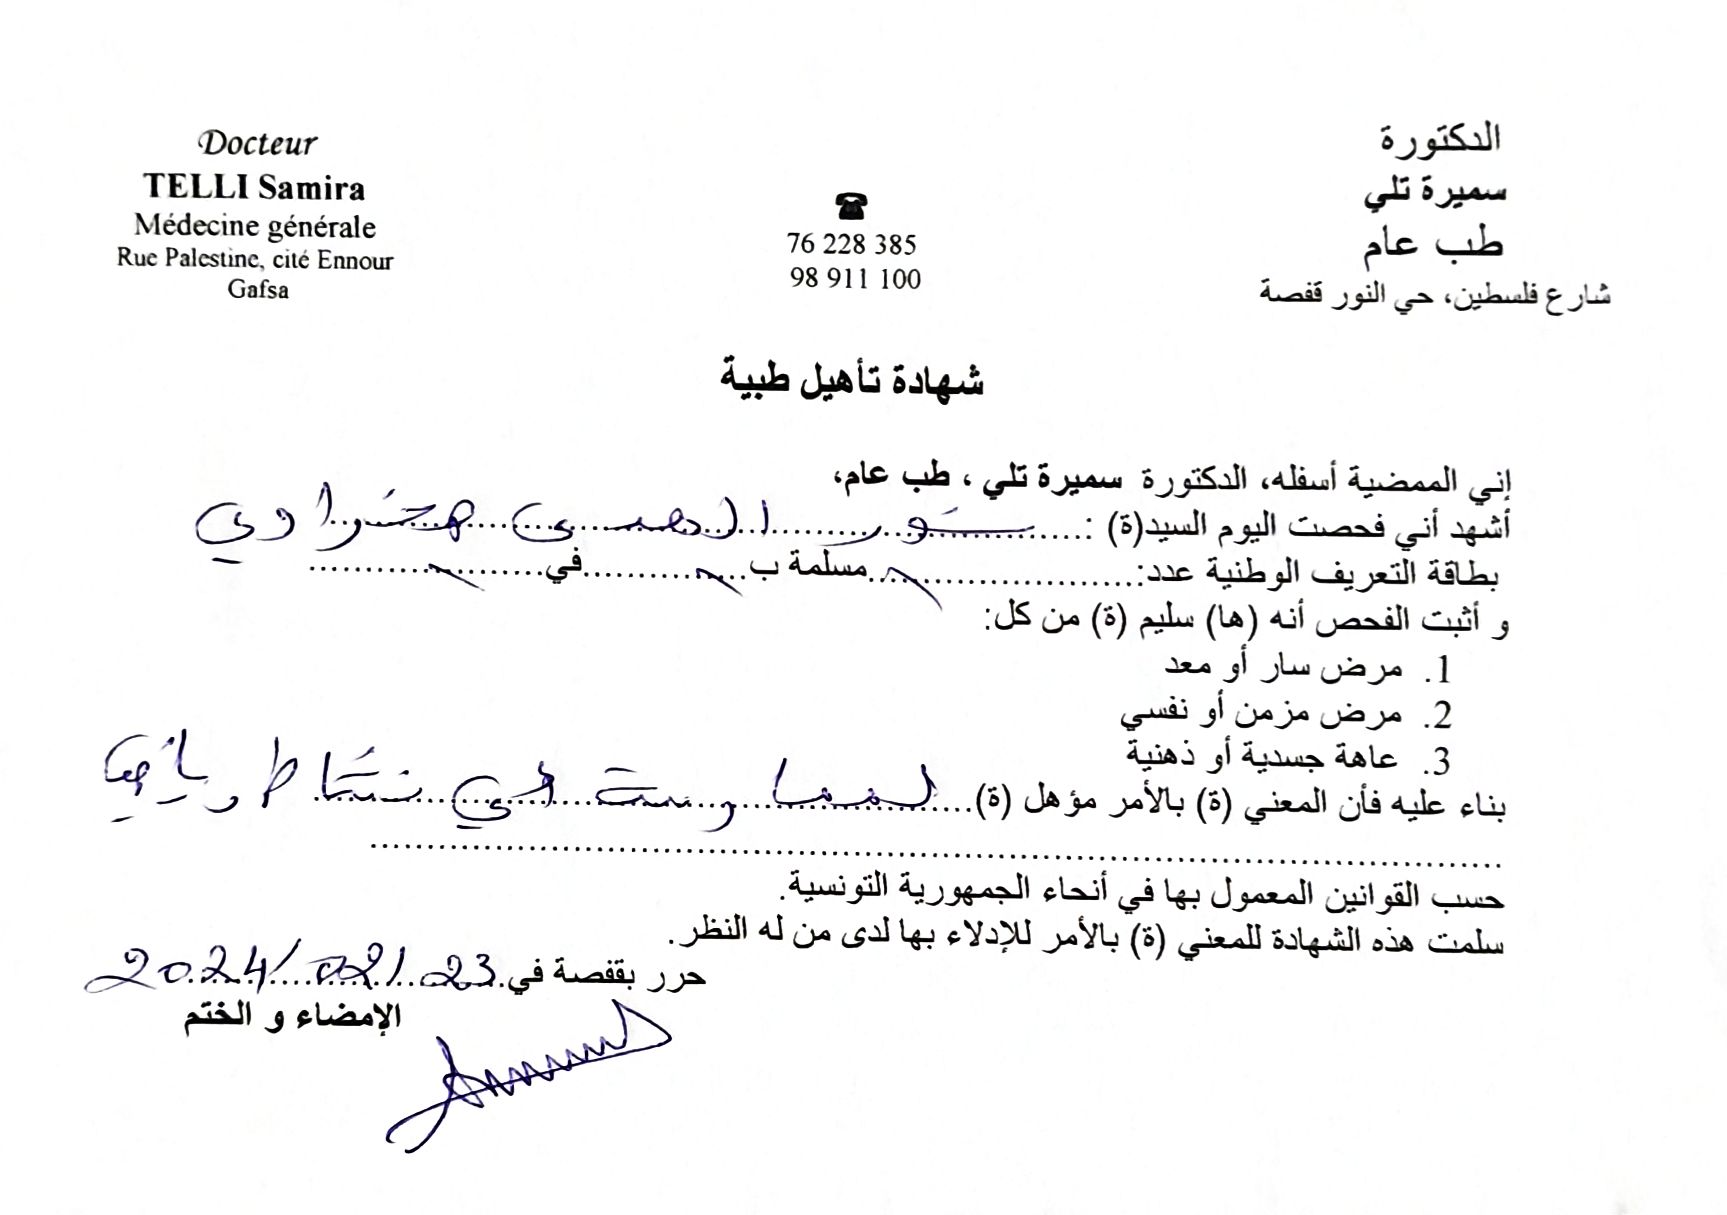 Docteur
TELLI Samira
Médecine générale
Rue Palestine, cité Ennour
Gafsa
76 228 385
98 911 100
الدكتورة
سميرة تلي
طب عام
شارع فلسطين، حي النور قفصة
شهادة تأهيل طبية
إني الممضية أسفله، الدكتورة سميرة تلي ، طب عام،
أشهد أني فحصت اليوم السيد(ة) : نور
بطاقة التعريف الوطنية عدد:......................مسلمة ب................في....................
و أثبت الفحص أنه (ها) سليم (ة) من كل:
1. مرض سار أو معد
2. مرض مزمن أو نفسي
3. عاهة جسدية أو ذهنية
بناء عليه فأن المعني (ة) بالأمر مؤهل (ة) لممارسة أي نشاط رياضي
حسب القوانين المعمول بها في أنحاء الجمهورية التونسية.
سلمت هذه الشهادة للمعني (ة) بالأمر للإدلاء بها لدى من له النظر.
حرر بقفصة في 23/02/2024
الإمضاء و الختم